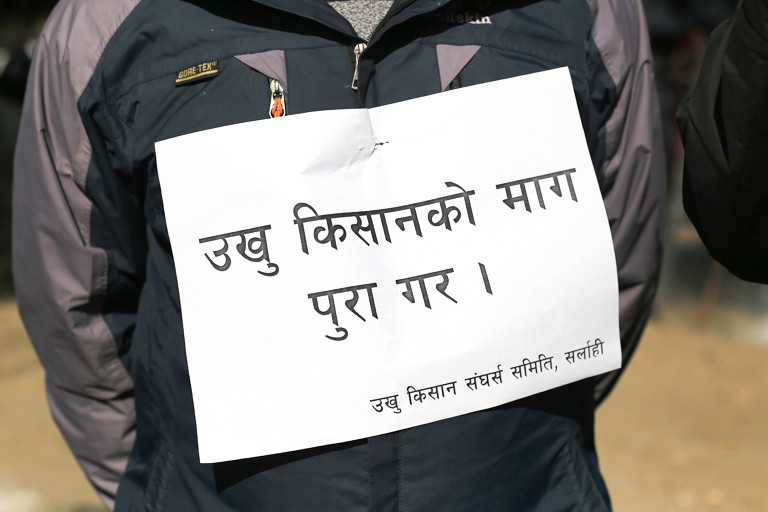 GORE-TEX
उखु किसानको माग
पुरा गर ।
उखु किसान संघर्स समिति, सर्लाही